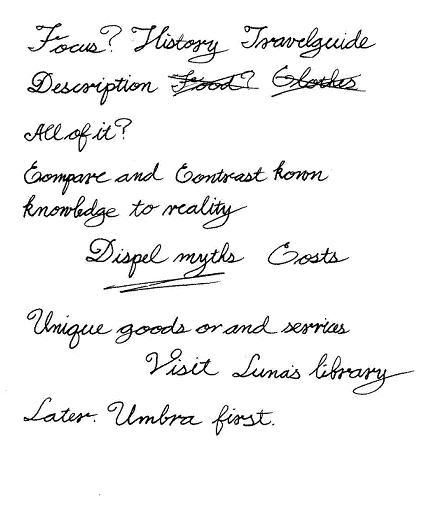 Focus? History Travelguide
Description Food? Clothes
All of it?
Compare and Contrast kown
knowledge to reality
Dispel myths Costs
Unique goods or and services
Visit Luna's library
Later. Umbra first.